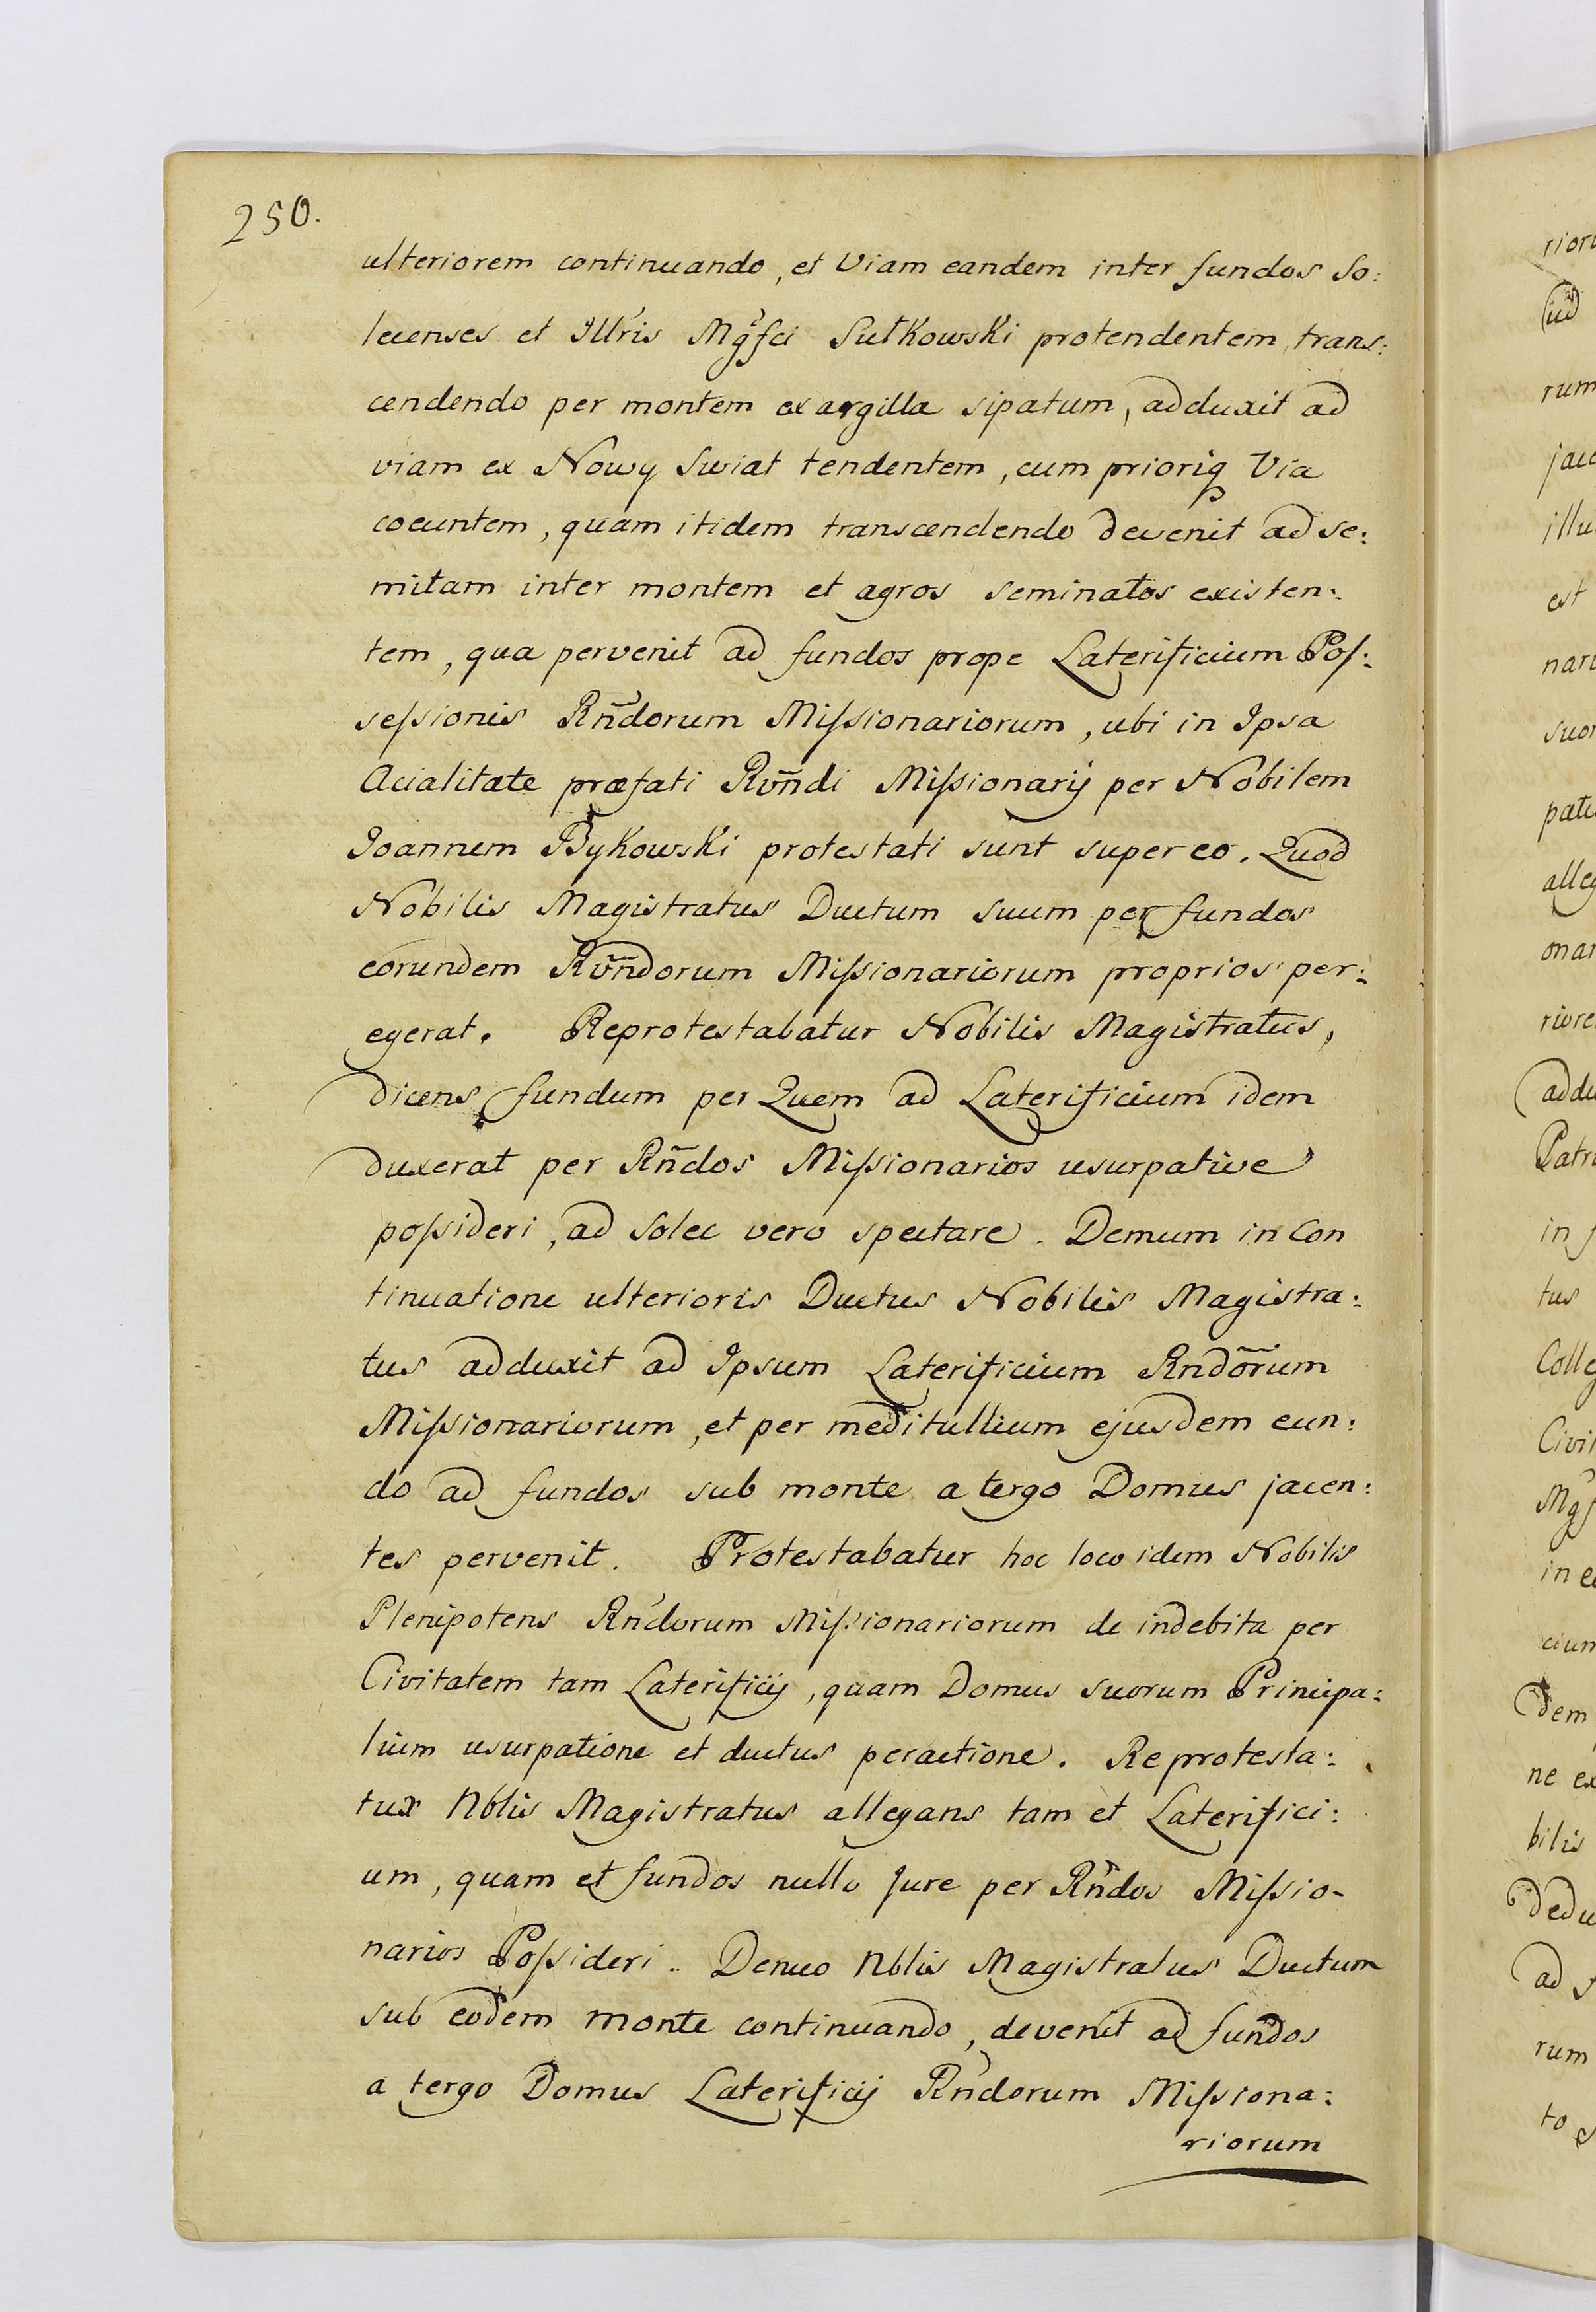 250.
ulteriorem continuando, et Viam eandem inter fundos So:
lecenses et Illris Mgfci Sułkowski protendentem, trans:
cendendo per montem ex argilla sipatum, adduxit ad
viam ex Nowy Swiat tendentem, cum prioriq Via
coeuntem, quam itidem transcendendo devenit ad se:
mitam inter montem et agros seminatos existen:
tem, qua pervenit ad fundos prope Laterificium Pos:
sessionis Rñdorum Missionariorum, ubi in Ipsa
Acialitate præfati Rvñdi Missionarij per Nobilem
Joannem Bykowski protestati sunt super eo. Quod
Nobilis Magistratus Ductum suum per fundos
eorundem Rvñdorum Missionariorum proprios per:
egerat. Reprotestabatur Nobilis Magistratus,
dicens fundum per Quem ad Laterificium idem
duxerat per Rñdos Missionarios usurpative
possideri, ad Solec vero spectare. Demum in Con
tinuatione ulterioris Ductus Nobilis Magistra:
tus adduxit ad Ipsum Laterificium Rndõrum
Missionariorum, et per meditullium ejusdem eun:
do ad fundos sub monte a tergo Domus jacen:
tes pervenit. Protestabatur hoc loco idem Nobilis
Plenipotens Rndorum Missionariorum de indebita per
Civitatem tam Laterificij, quam Domus suorum Principa:
lium usurpatione et ductus peractione. Reprotesta:
tur Nblis Magistratus allegans tam et Laterifici:
um, quam et fundos nullo Jure per Rñdos Missio-
narios Possideri.. Denuo Nblis Magistratus Ductum
sub eodem monte continuando, devenit ad fundos
a tergo Domus Laterificij Rndorum Missiona:
riorum